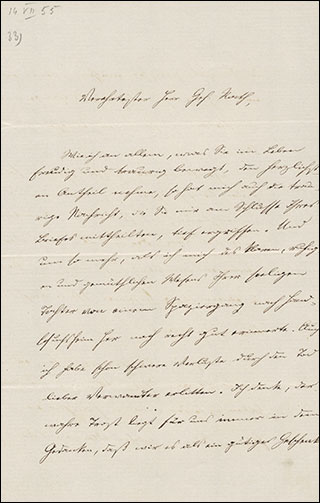 14 VII 55
33)
Verehrtester Herr Geh Rath,
Wie ich an allem, was Sie im Leben
freudig und traurig bewegt, den herzlichst
en Antheil nehme, so hat mich auch die trau
rige Nachricht, die Sie mir am Schlusse Ihres
Briefes mittheilten, tief ergriffen. Und
um so mehr, als ich mich des klaren, ruhig
en und gemüthlichen Wesens Ihrer seeligen
Tochter von einem Spaziergang nach Hand
schuhsheim her noch recht gut erinnerte. Auch
ich habe schon schwere Verluste durch den Tod
lieber Verwandter erlitten. Ich denke, der
wahre Trost liegt für uns immer in dem
Gedanken, daß wir es als ein gütiges Geschenk